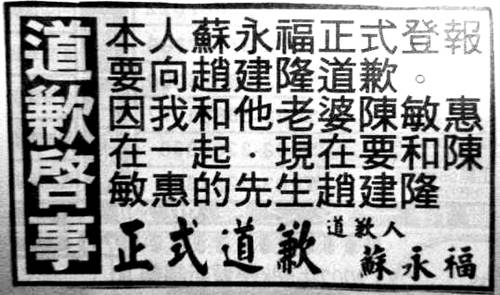 道歉啓事
本人蘇永福正式登報
要向趙建隆道歉。
因我和他老婆陳敏惠
在一起．現在要和陳
敏惠的先生趙建隆
正式道歉 道歉人 蘇永福